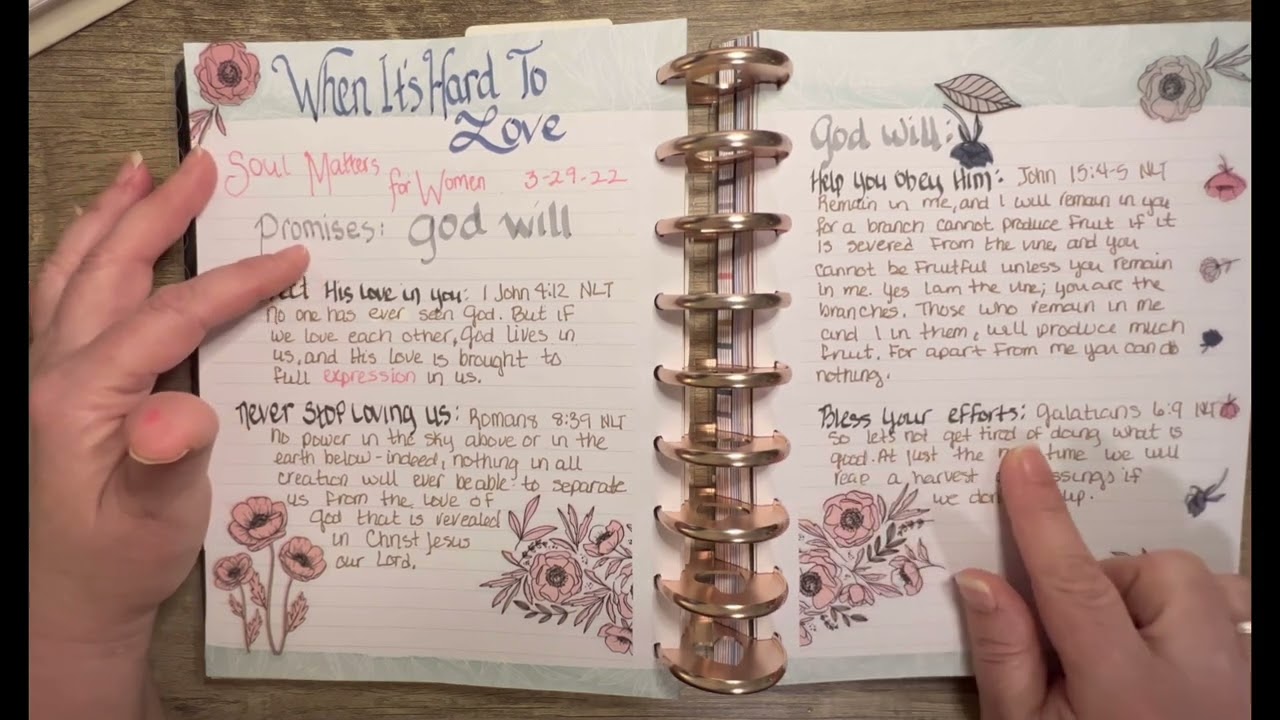 When It's Hard To
Love
Soul Matters
for Women 3-29-22
Promises: God will
His Love in you: 1 John 4:12 NLT
No one has ever seen God. But if
we love each other, God lives in
us, and His love is brought to
full expression in us.
Never Stop Loving us: Romans 8:39 NLT
No power in the sky above or in the
earth below-indeed, nothing in all
creation will ever be able to separate
us from the love of
God that is revealed
in Christ Jesus
our Lord.
God will:
Help you obey Him: John 15:4-5 NLT
Remain in me, and I will remain in you
for a branch cannot produce fruit if it
is severed from the vine, and you
cannot be fruitful unless you remain
in me. Yes I am the vine; you are the
branches. Those who remain in me
and I in them, will produce much
fruit. For apart from me you can do
nothing.
Bless your efforts: Galatians 6:9 NLT
So lets not get tired of doing what is
good. At just the time we will
reap a harvest if
we up.